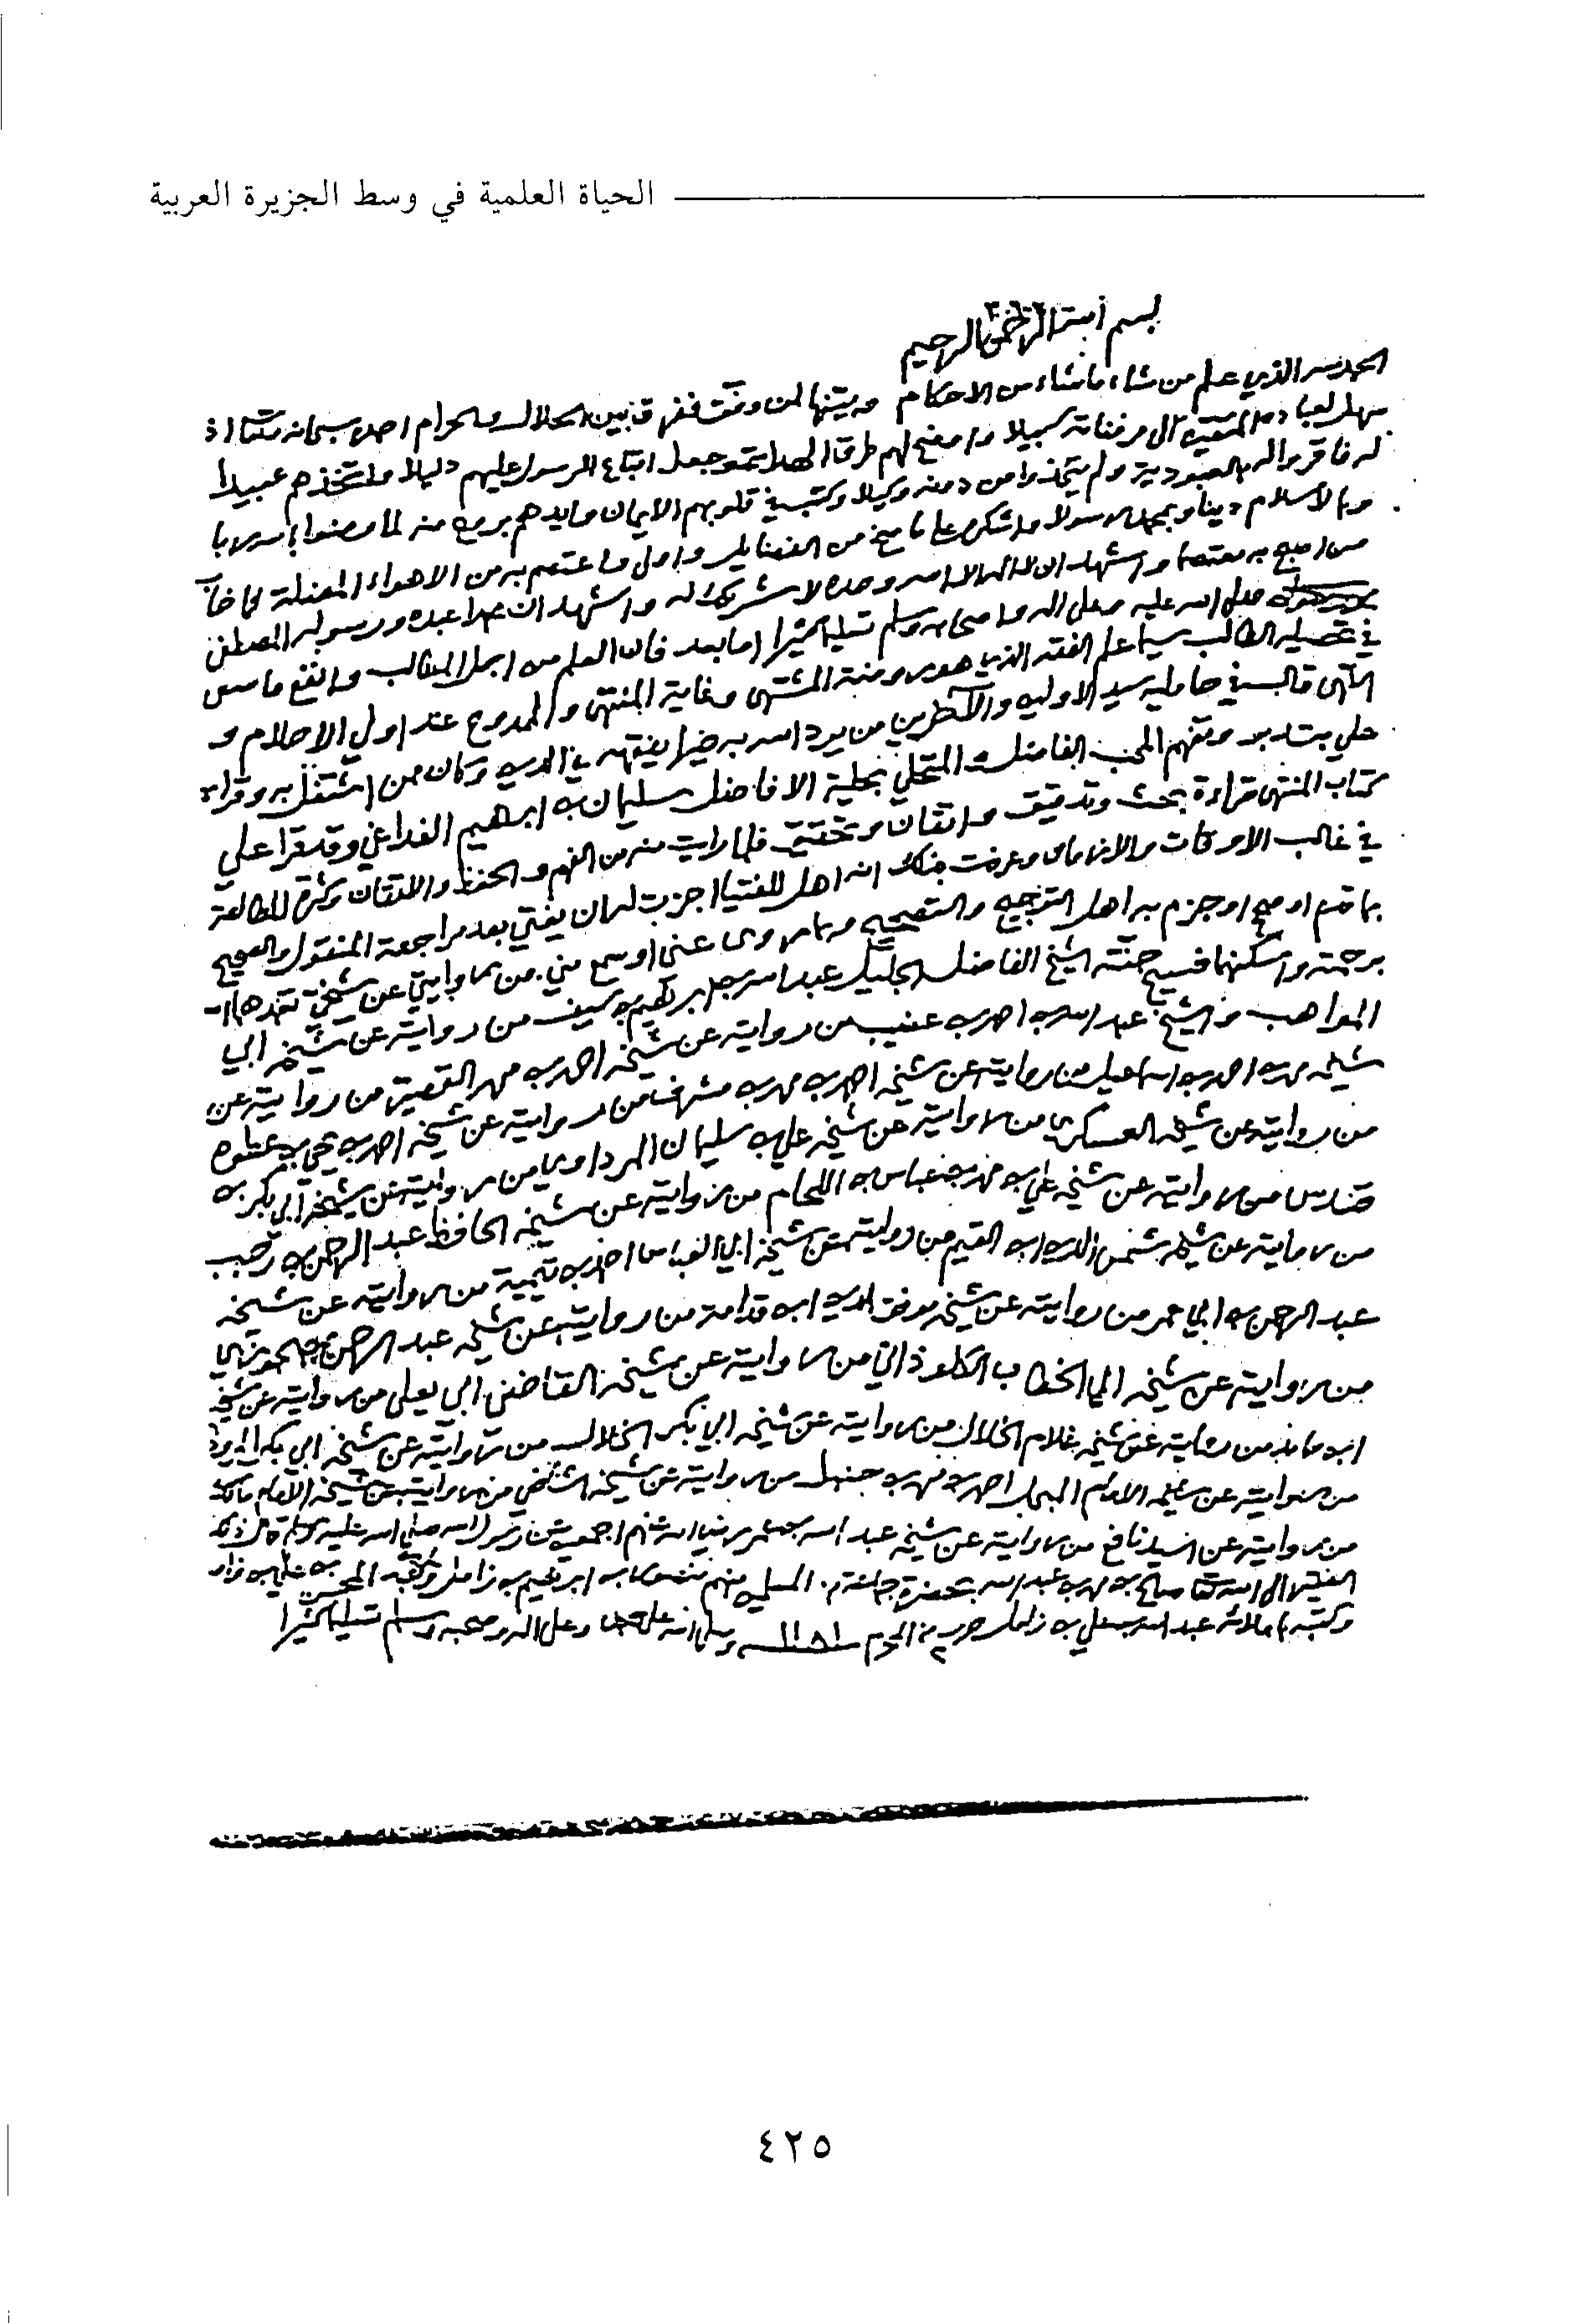 الحياة العلمية في وسط الجزيرة العربية
بسم الله الرحمن الرحيم
الحمد لله الذي علم من شاء ما شاء من الاحكام وبينها لمن وفقه ففرق بين الحلال والحرام احمده سبحانه
سهل لعباده المتقين الى مرضاته سبيلا واوضح لهم طرق الهداية وجعل اتباع الرسول عليهم دليلا واتخذهم عبيدا
له فاقروا له بالعبودية ولم يتخذوا من دونه وكيلا وكتب في قلوبهم الايمان وايدهم بروح منه لما رضوا بالله ربا
وبالاسلام دينا وبمحمد رسولا واشكره على ما منح من الفضايل واولى واعتصم به من الاهواء المضلة فما خاب
من اصبح به معتصما واشهد ان لا اله الا الله وحده لا شريك له واشهد ان محمدا عبده ورسوله المصطفى
صلى الله عليه وعلى اله واصحابه وسلم تسليما كثيرا اما بعد فان العلم من اجل المطالب وانفع ما
في تحصيله الطالب سيما علم الفقه الذي هو منية المشتهي وغاية المنتهى والممدوح عند اولي الاحلام و
النهى قال في حامليه سيد الاولين والآخرين من يرد الله به خيرا يفقهه في الدين وكان من اشتغل به وقراه
على بتدبر وتفهم المحب الفاضل المتحلي بحلية الافاضل سليمان بن ابرهيم الفداغي وقد قرا علي
كتاب المنتهى قراءة بحث وتدقيق واتقان وتحقيق فلما رايت منه من الفهم والحفظ والاتقان وكثرة المطالعة
في غالب الاوقات والازمان وعرفت بذلك انه اهل للفتيا اجزت له ان يفتي بعد مراجعة المنقول والصحيح
بما قدم او صح او جزم به اهل الترجيح والتصحيح وبما روى عني او سمع مني من روايتي عن شيخي تغمدهما الله
برحمته واسكنهما فسيح جنته الشيخ الفاضل الجليل عبد الله بن ابرهيم بن سيف من روايته عن شيخه ابي
المواهب والشيخ عبد الله بن احمد بن عضيب من روايته عن شيخه احمد بن محمد القصير من روايته عن
شيخه محمد بن احمد بن اسماعيل من روايته عن شيخه احمد بن محمد بن مشرف من روايته عن شيخه احمد بن يحيى بن عطوه
من روايته عن شيخه العسكري من روايته عن شيخه علي بن سليمان المرداوي من روايته عن شيخه ابي بكر بن
قندس من روايته عن شيخه علي بن محمد بن عباس بن اللحام من روايته عن شيخه الحافظ عبد الرحمن بن رجب
من روايته عن شيخه شمس الدين ابن القيم من روايته عن شيخه ابي العباس احمد بن تيمية من روايته عن شيخه
عبد الرحمن بن ابي عمر من روايته عن شيخه موفق الدين ابن قدامة من روايته عن شيخه عبد الرحمن بن الجوزي
من روايته عن شيخه ابي الخطاب الكلوذاني من روايته عن شيخه القاضي ابي يعلى من روايته عن شيخه
ابن حامد من روايته عن شيخه غلام الخلال من روايته عن شيخه ابي بكر الخلال من روايته عن شيخه ابي بكر المروذي
من روايته عن شيخه الامام المبجل احمد بن محمد بن حنبل من روايته عن شيخه الشافعي من روايته عن شيخه الامام مالك
من روايته عن نافع من روايته عن شيخه عبد الله بن عمر رضي الله عنهم اجمعين عن رسول الله صلى الله عليه وسلم قال ذلك
الفقير الى الله تعالى صالح بن محمد بن عبد الله بحضرة جماعة من المسلمين منهم ابرهيم بن زامل
وكتبه باملائه عبد الله بن علي بن زامل في المحرم وصلى الله على محمد وعلى اله وصحبه وسلم تسليما كثيرا
٤٢٥